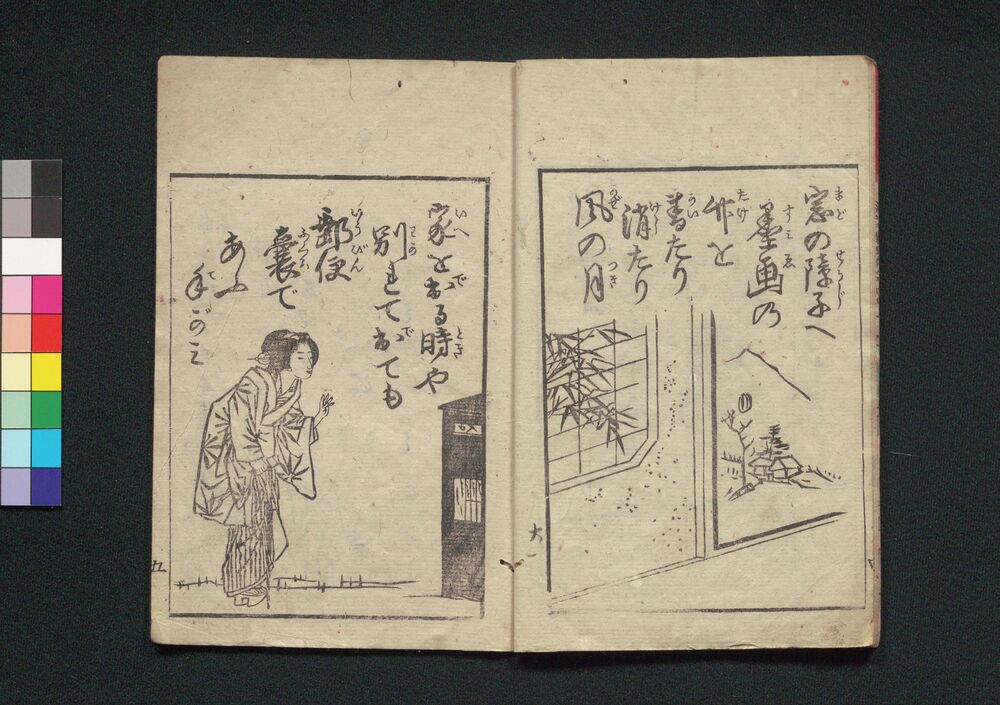 窓の障子へ
墨画の
竹を
書たり
消たり
風の月
家を出る時や
別れて出ても
郵便
嚢で
あふ
手がみ
五